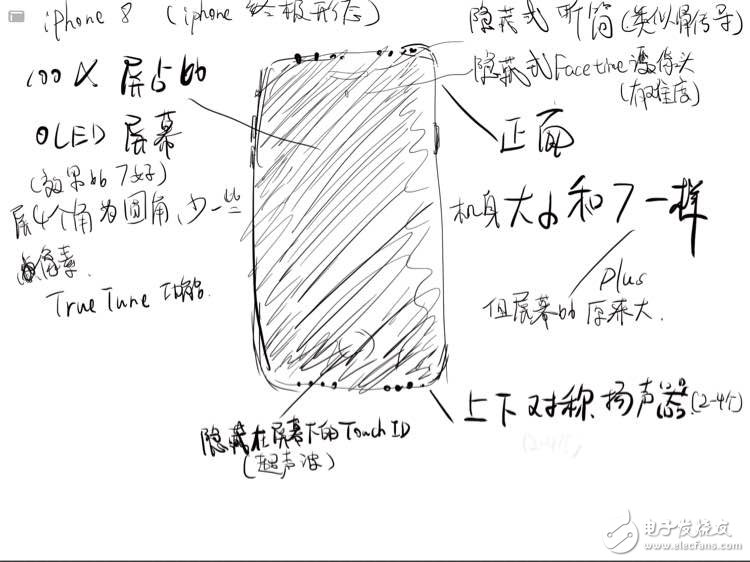 iphone 8 (iphone 终极形态)
隐藏式 听筒 (类似骨传导)
隐藏式 Facetime 摄像头
100% 屏占比
OLED 屏幕
(效果比7好)
正面
屏4个角为圆角,少一些
像素.
机身大小和7一样
Plus
但屏幕比原来大.
True Tune 功能.
上下对称扬声器(2-4个)
隐藏在屏幕下的Touch ID
(超声波)
电子发烧友
www.elecfans.com